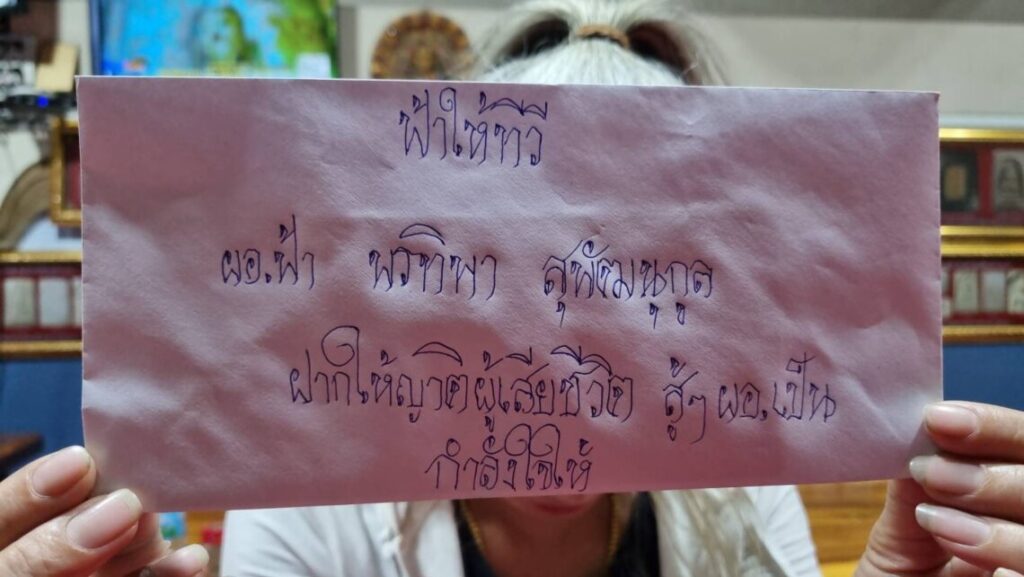 ฟ้าให้ทีวี
ผอ.ฟ้า พรทิพา สุพัฒนุกูล
ฝากให้ญาติผู้เสียชีวิต สู้ๆ ผอ.เป็น
กำลังใจให้